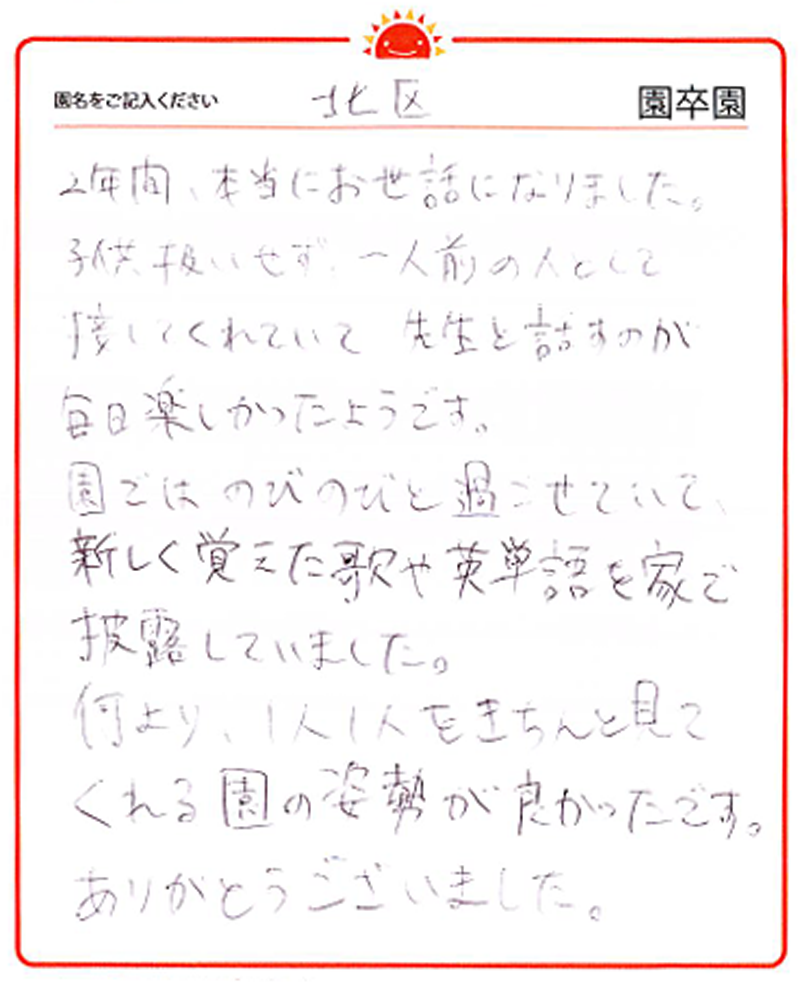 園名をご記入ください 北区 園卒園
2年間、本当にお世話になりました。
子供扱いせず、一人前の人として
接してくれていて 先生と話すのが
毎日楽しかったようです。
園ではのびのびと過ごせていて、
新しく覚えた歌や英単語を家で
披露していました。
何より、1人1人をきちんと見て
くれる園の姿勢が良かったです。
ありがとうございました。